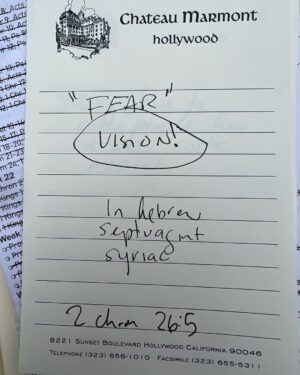 Chateau Marmont
hollywood
"FEAR"
VISION!
In hebrew
septuagint
syriac
2 chron 26:5
8221 Sunset Boulevard Hollywood California 90046
Telephone (323) 656-1010 Facsimile (323) 655-5311